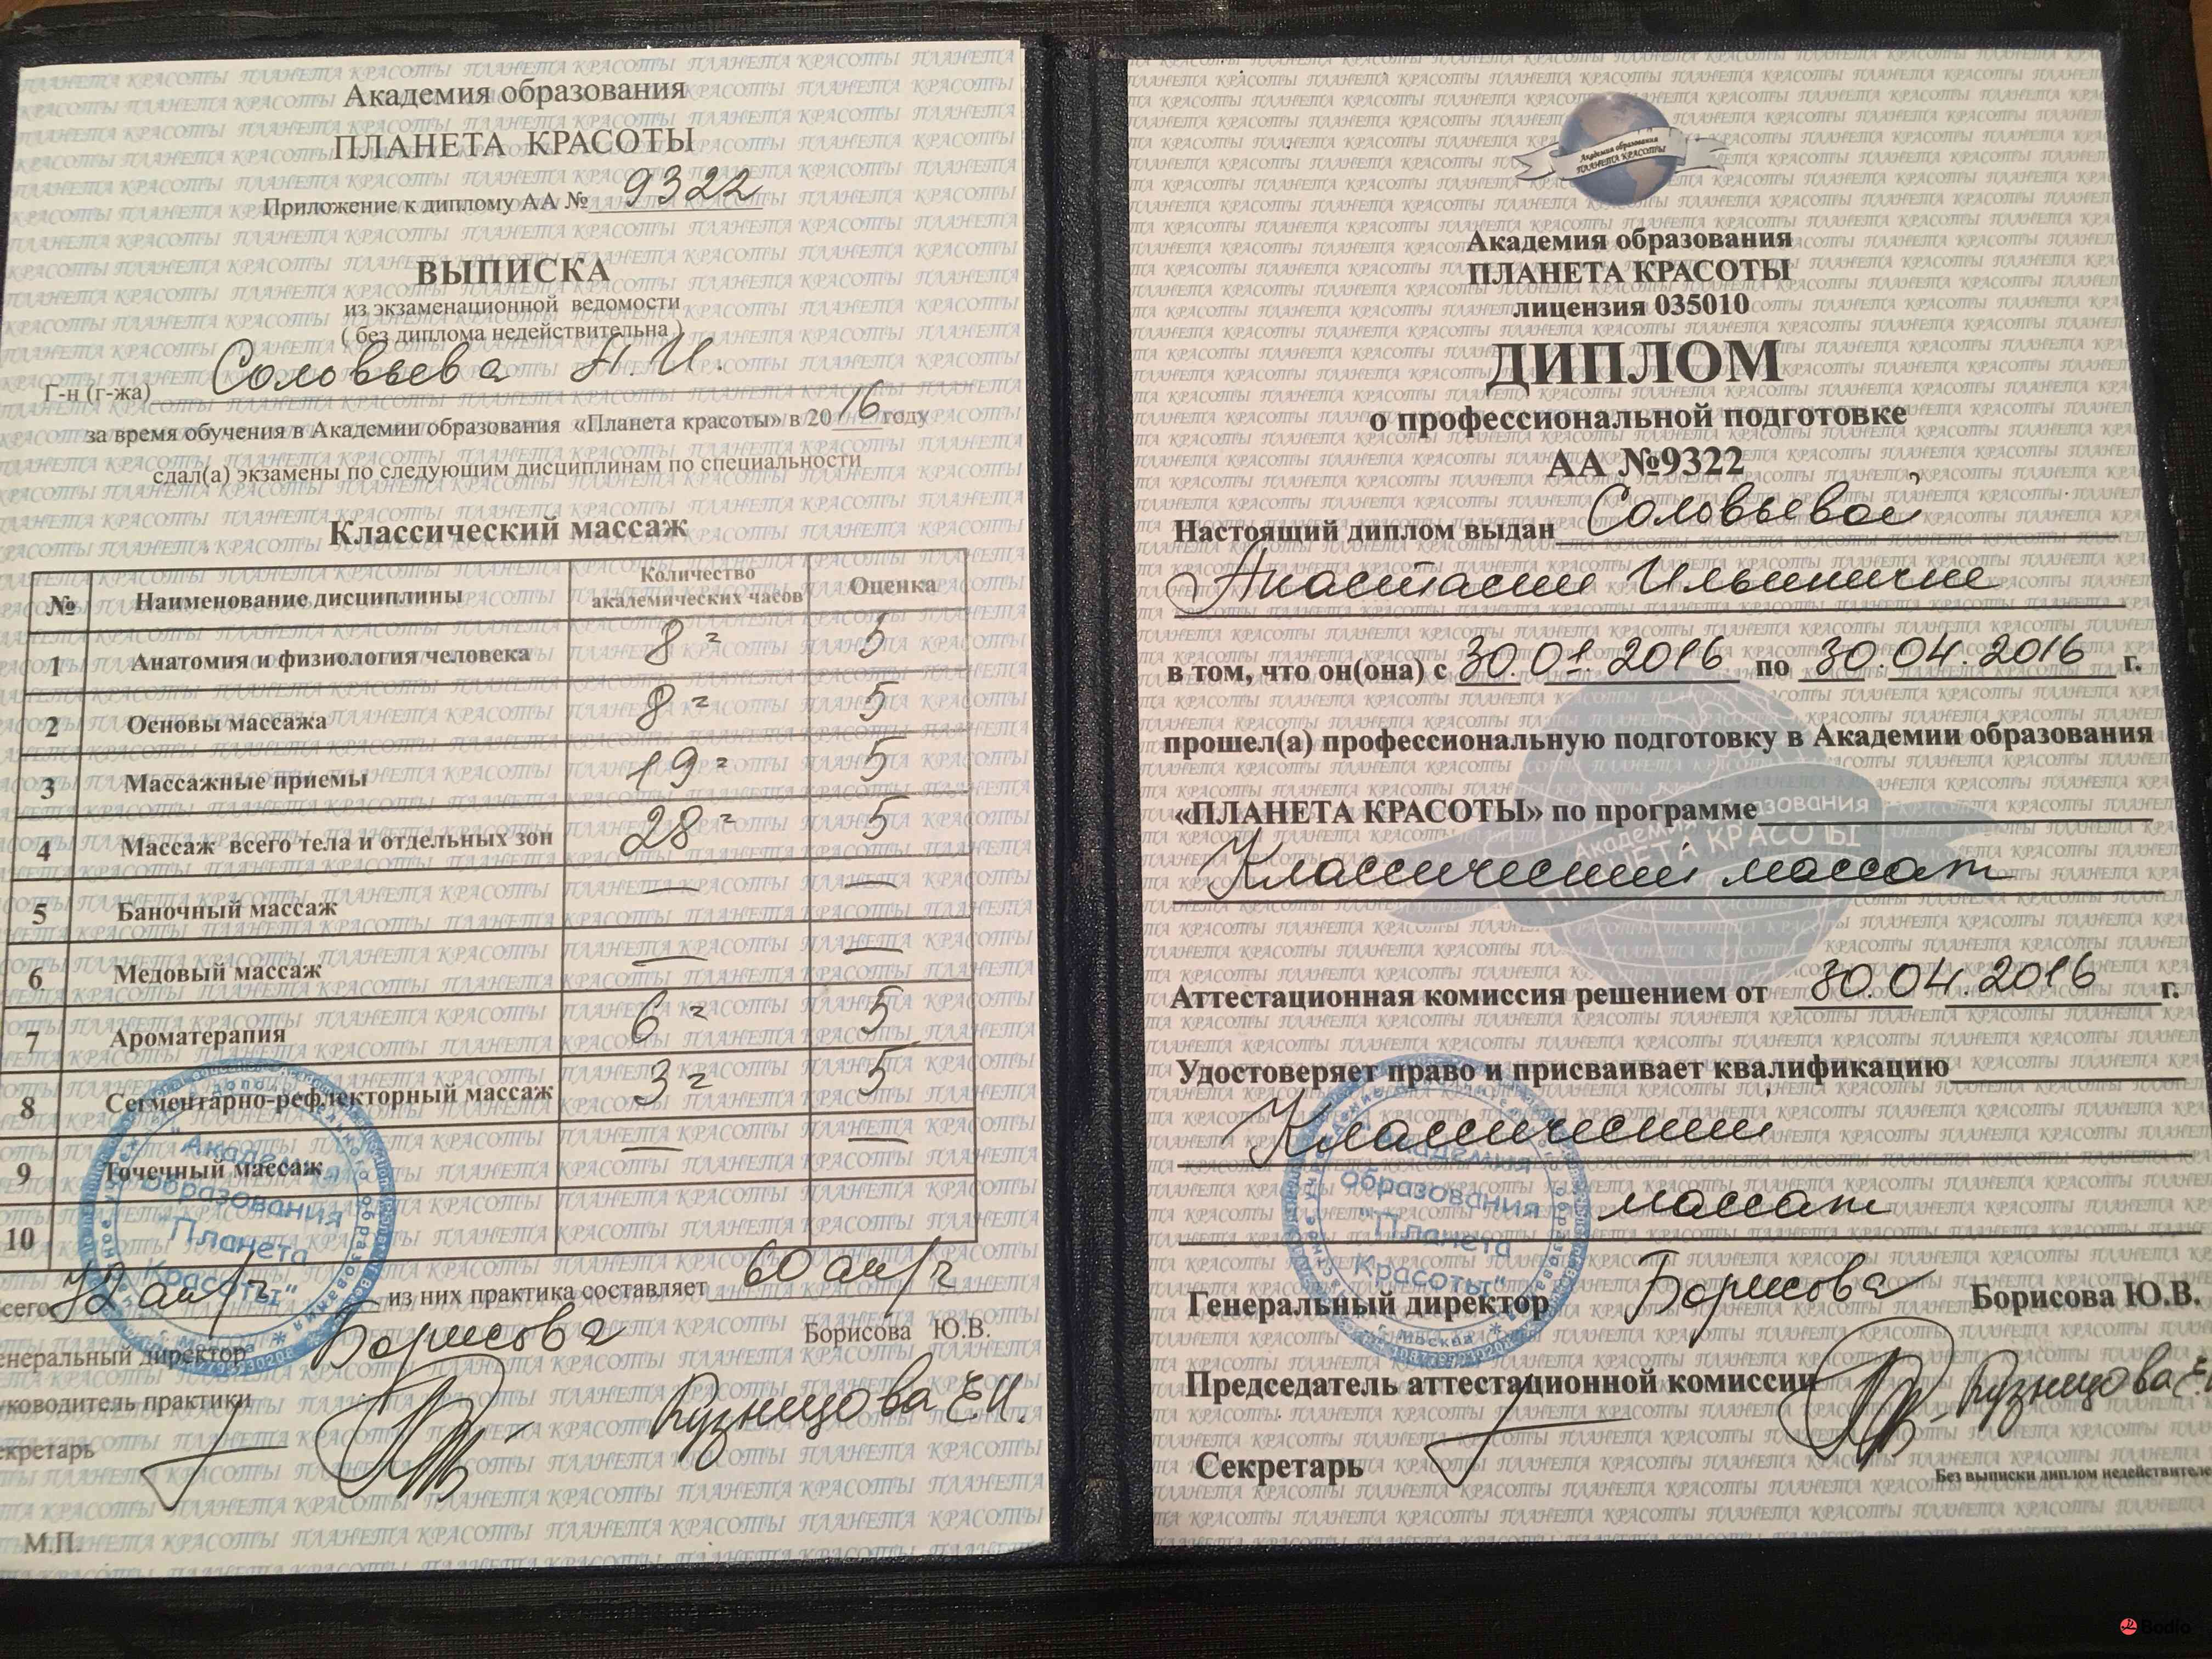 Академия образования
ПЛАНЕТА КРАСОТЫ
Приложение к диплому АА № 9322
ВЫПИСКА
из экзаменационной ведомости
( без диплома недействительна )
Г-н (г-жа) Соловьева А.И.
за время обучения в Академии образования «Планета красоты» в 20 16 году
сдал(а) экзамены по следующим дисциплинам по специальности
Классический массаж
№ Наименование дисциплины Количество академических часов Оценка
1 Анатомия и физиология человека 8 ч 5
2 Основы массажа 8 ч 5
3 Массажные приемы 19 ч 5
4 Массаж всего тела и отдельных зон 28 ч 5
5 Баночный массаж — —
6 Медовый массаж — —
7 Ароматерапия 6 ч 5
8 Сегментарно-рефлекторный массаж 3 ч 5
9 Точечный массаж — —
10
сего 72 ак/ч из них практика составляет 60 ак/ч
енеральный директор Борисова Борисова Ю.В.
уководитель практики Кузнецова Е.И.
екретарь
М.П.
Академия образования
ПЛАНЕТА КРАСОТЫ
Академия образования
ПЛАНЕТА КРАСОТЫ
лицензия 035010
ДИПЛОМ
о профессиональной подготовке
АА №9322
Настоящий диплом выдан Соловьевой
Анастасии Ильиничне
в том, что он(она) с 30.01.2016 по 30.04.2016 г.
прошел(а) профессиональную подготовку в Академии образования
«ПЛАНЕТА КРАСОТЫ» по программе
Классический массаж
Аттестационная комиссия решением от 30.04.2016 г.
Удостоверяет право и присваивает квалификацию
Классический
массаж
Генеральный директор Борисова Борисова Ю.В.
Председатель аттестационной комиссии Кузнецова Е.И
Секретарь
Без выписки диплом недействителе
"Академия
образования
"Планета
Красоты"
г. Москва
Bodio